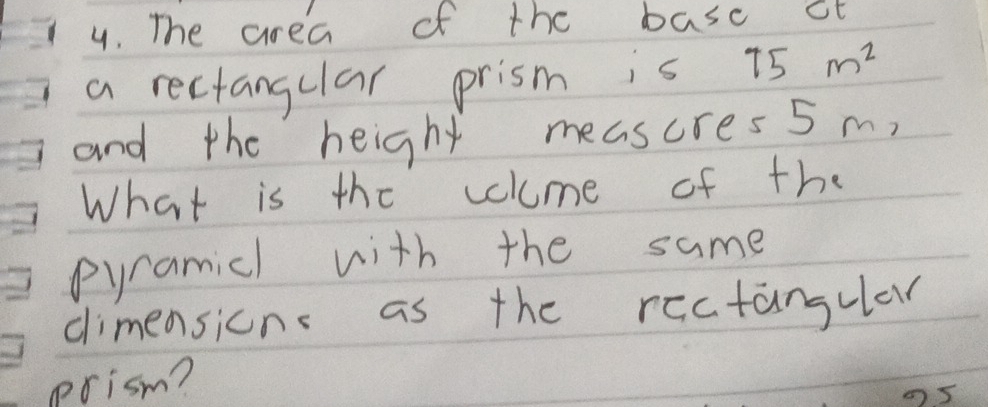 4. The area of the base of
a rectangular prism is 75 m²
and the height measures 5 m,
What is the volume of the
pyramid with the same
dimensions as the rectangular
prism?
25